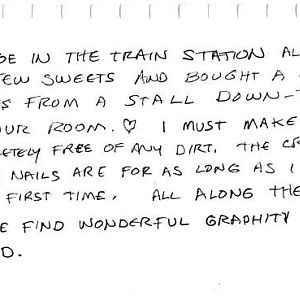 BE IN THE TRAIN STATION AL
FEW SWEETS AND BOUGHT A
FROM A STALL DOWN-T
OUR ROOM. ♡ I MUST MAKE
ETELY FREE OF ANY DIRT. THE CR
NAILS ARE FOR AS LONG AS I
FIRST TIME. ALL ALONG THE
E FIND WONDERFUL GRAPHITY
D.